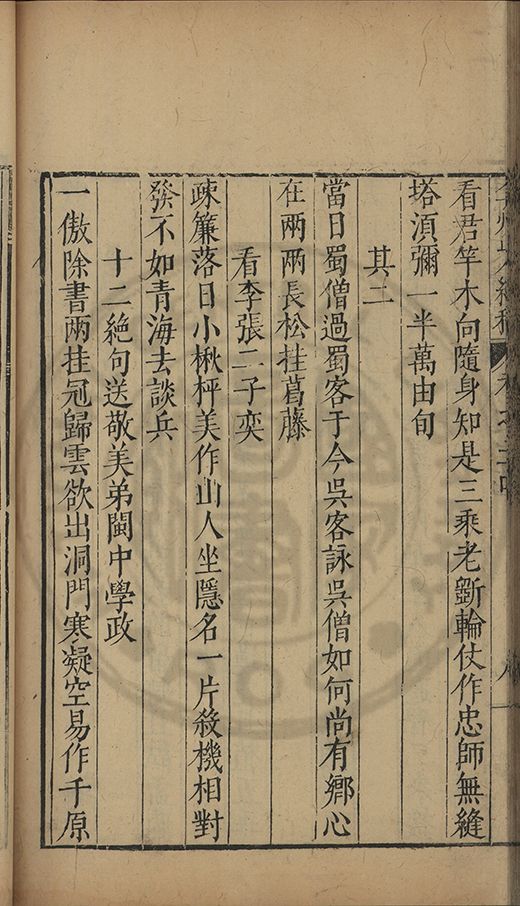 看君竿木向隨身知是三乘老斵輪仗作忠師無縫
塔須彌一半萬由旬
其二
當日蜀僧過蜀客于今吳客詠吳僧如何尚有鄉心
在兩兩長松挂葛藤
看李張二子奕
疎簾落日小楸枰美作山人坐隱名一片殺機相對
發不如青海去談兵
十二絕句送敬美弟閩中學政
一傲除書兩挂冠歸雲欲出洞門寒凝空易作千原